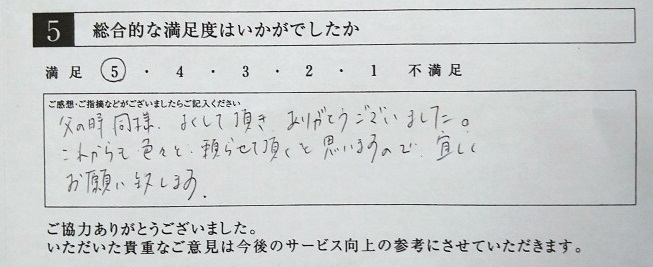 5 総合的な満足度はいかがでしたか
満足 5 ・ 4 ・ 3 ・ 2 ・ 1 不満足
ご感想・ご指摘などがございましたらご記入ください
父の時同様、よくして頂き ありがとうございました。
これからも色々と、頼らせて頂くと思いますので、宜しく
お願い致します。
ご協力ありがとうございました。
いただいた貴重なご意見は今後のサービス向上の参考にさせていただきます。